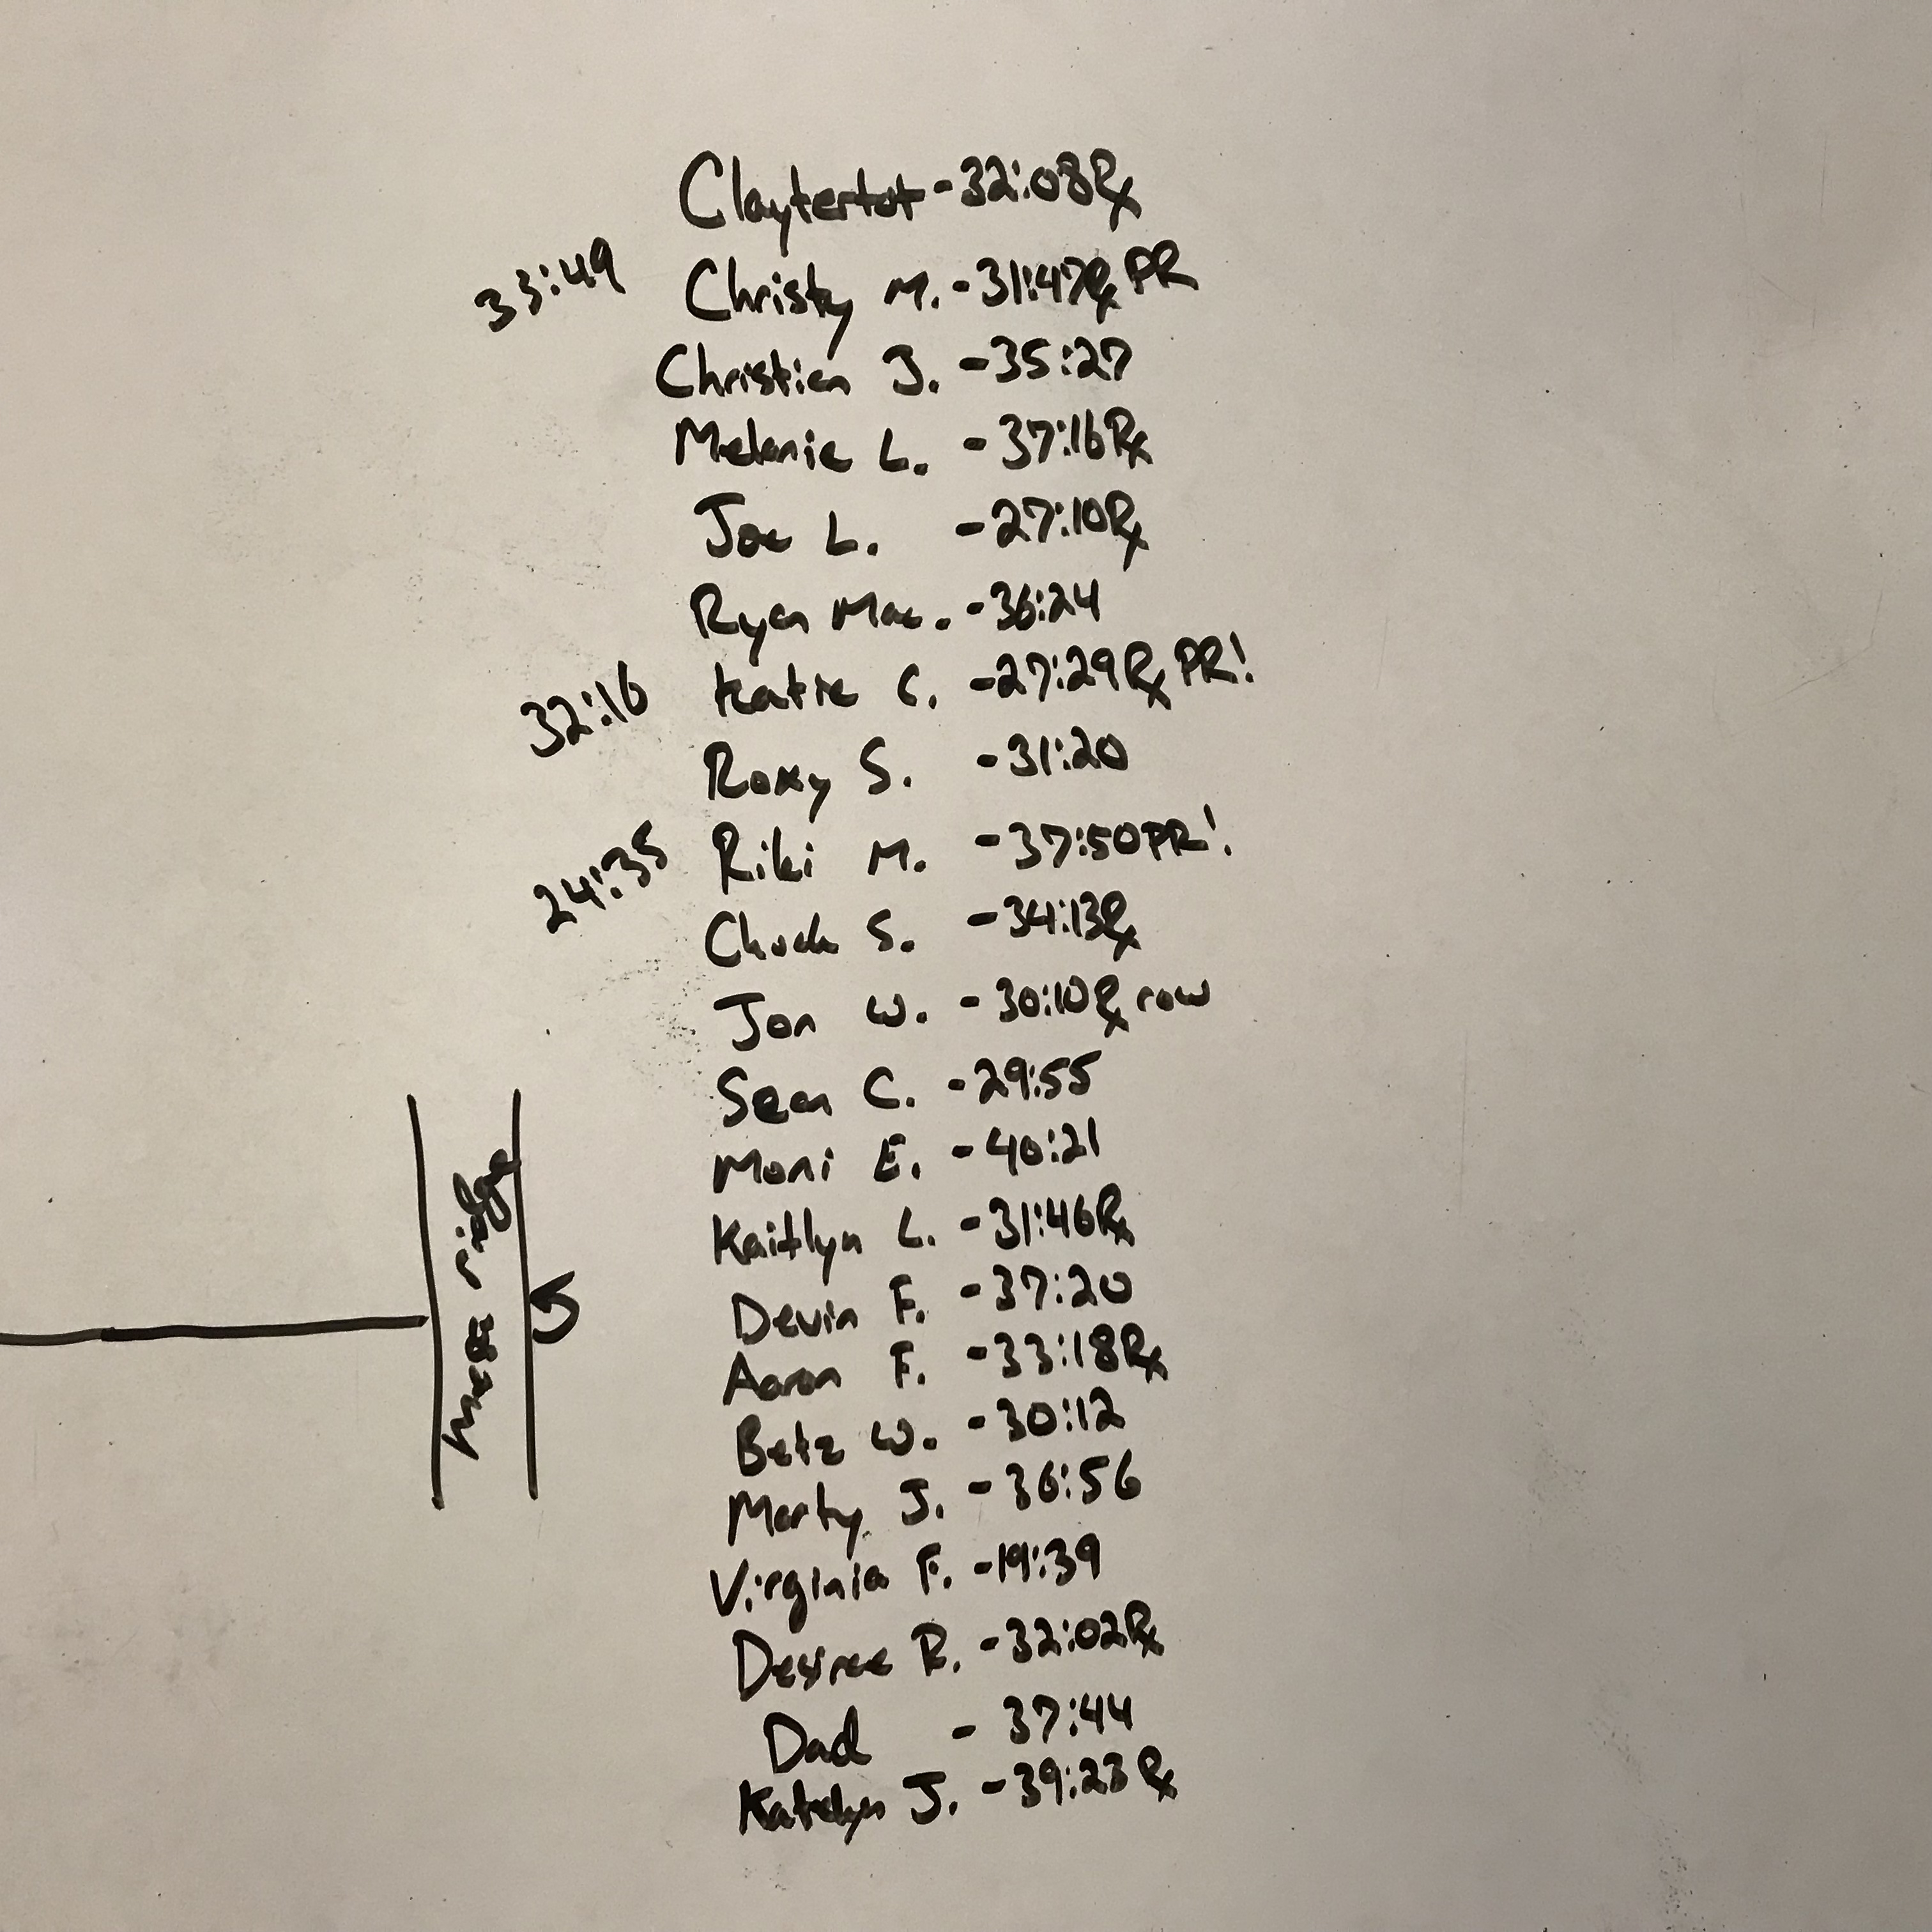 Claytertot - 32:08 Rx
33:49 Christy M. - 31:47 Rx PR
Christian J. - 35:27
Melanie L. - 37:16 Rx
Joe L. - 27:10 Rx
Ryan Mac. - 36:24
32:16 Katie C. - 27:29 Rx PR!
Roxy S. - 31:20
24:35 Riki M. - 37:50 PR!
Chuck S. - 34:13 Rx
Jon W. - 30:10 Rx row
Sean C. - 29:55
Moni E. - 40:21
Kaitlyn L. - 31:46 Rx
Devin F. - 37:20
Aaron F. - 33:18 Rx
Betz W. - 30:12
Marty J. - 36:56
Virginia F. - 19:39
Desiree R. - 32:02 Rx
Dad - 37:44
Katelyn J. - 39:23 Rx
ridge